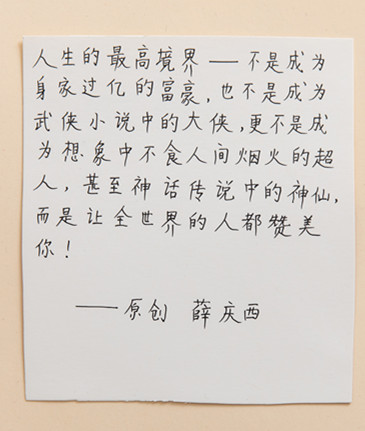 人生的最高境界——不是成为
身家过亿的富豪，也不是成为
武侠小说中的大侠，更不是成
为想象中不食人间烟火的超
人，甚至神话传说中的神仙，
而是让全世界的人都赞美
你！
——原创 薛庆西